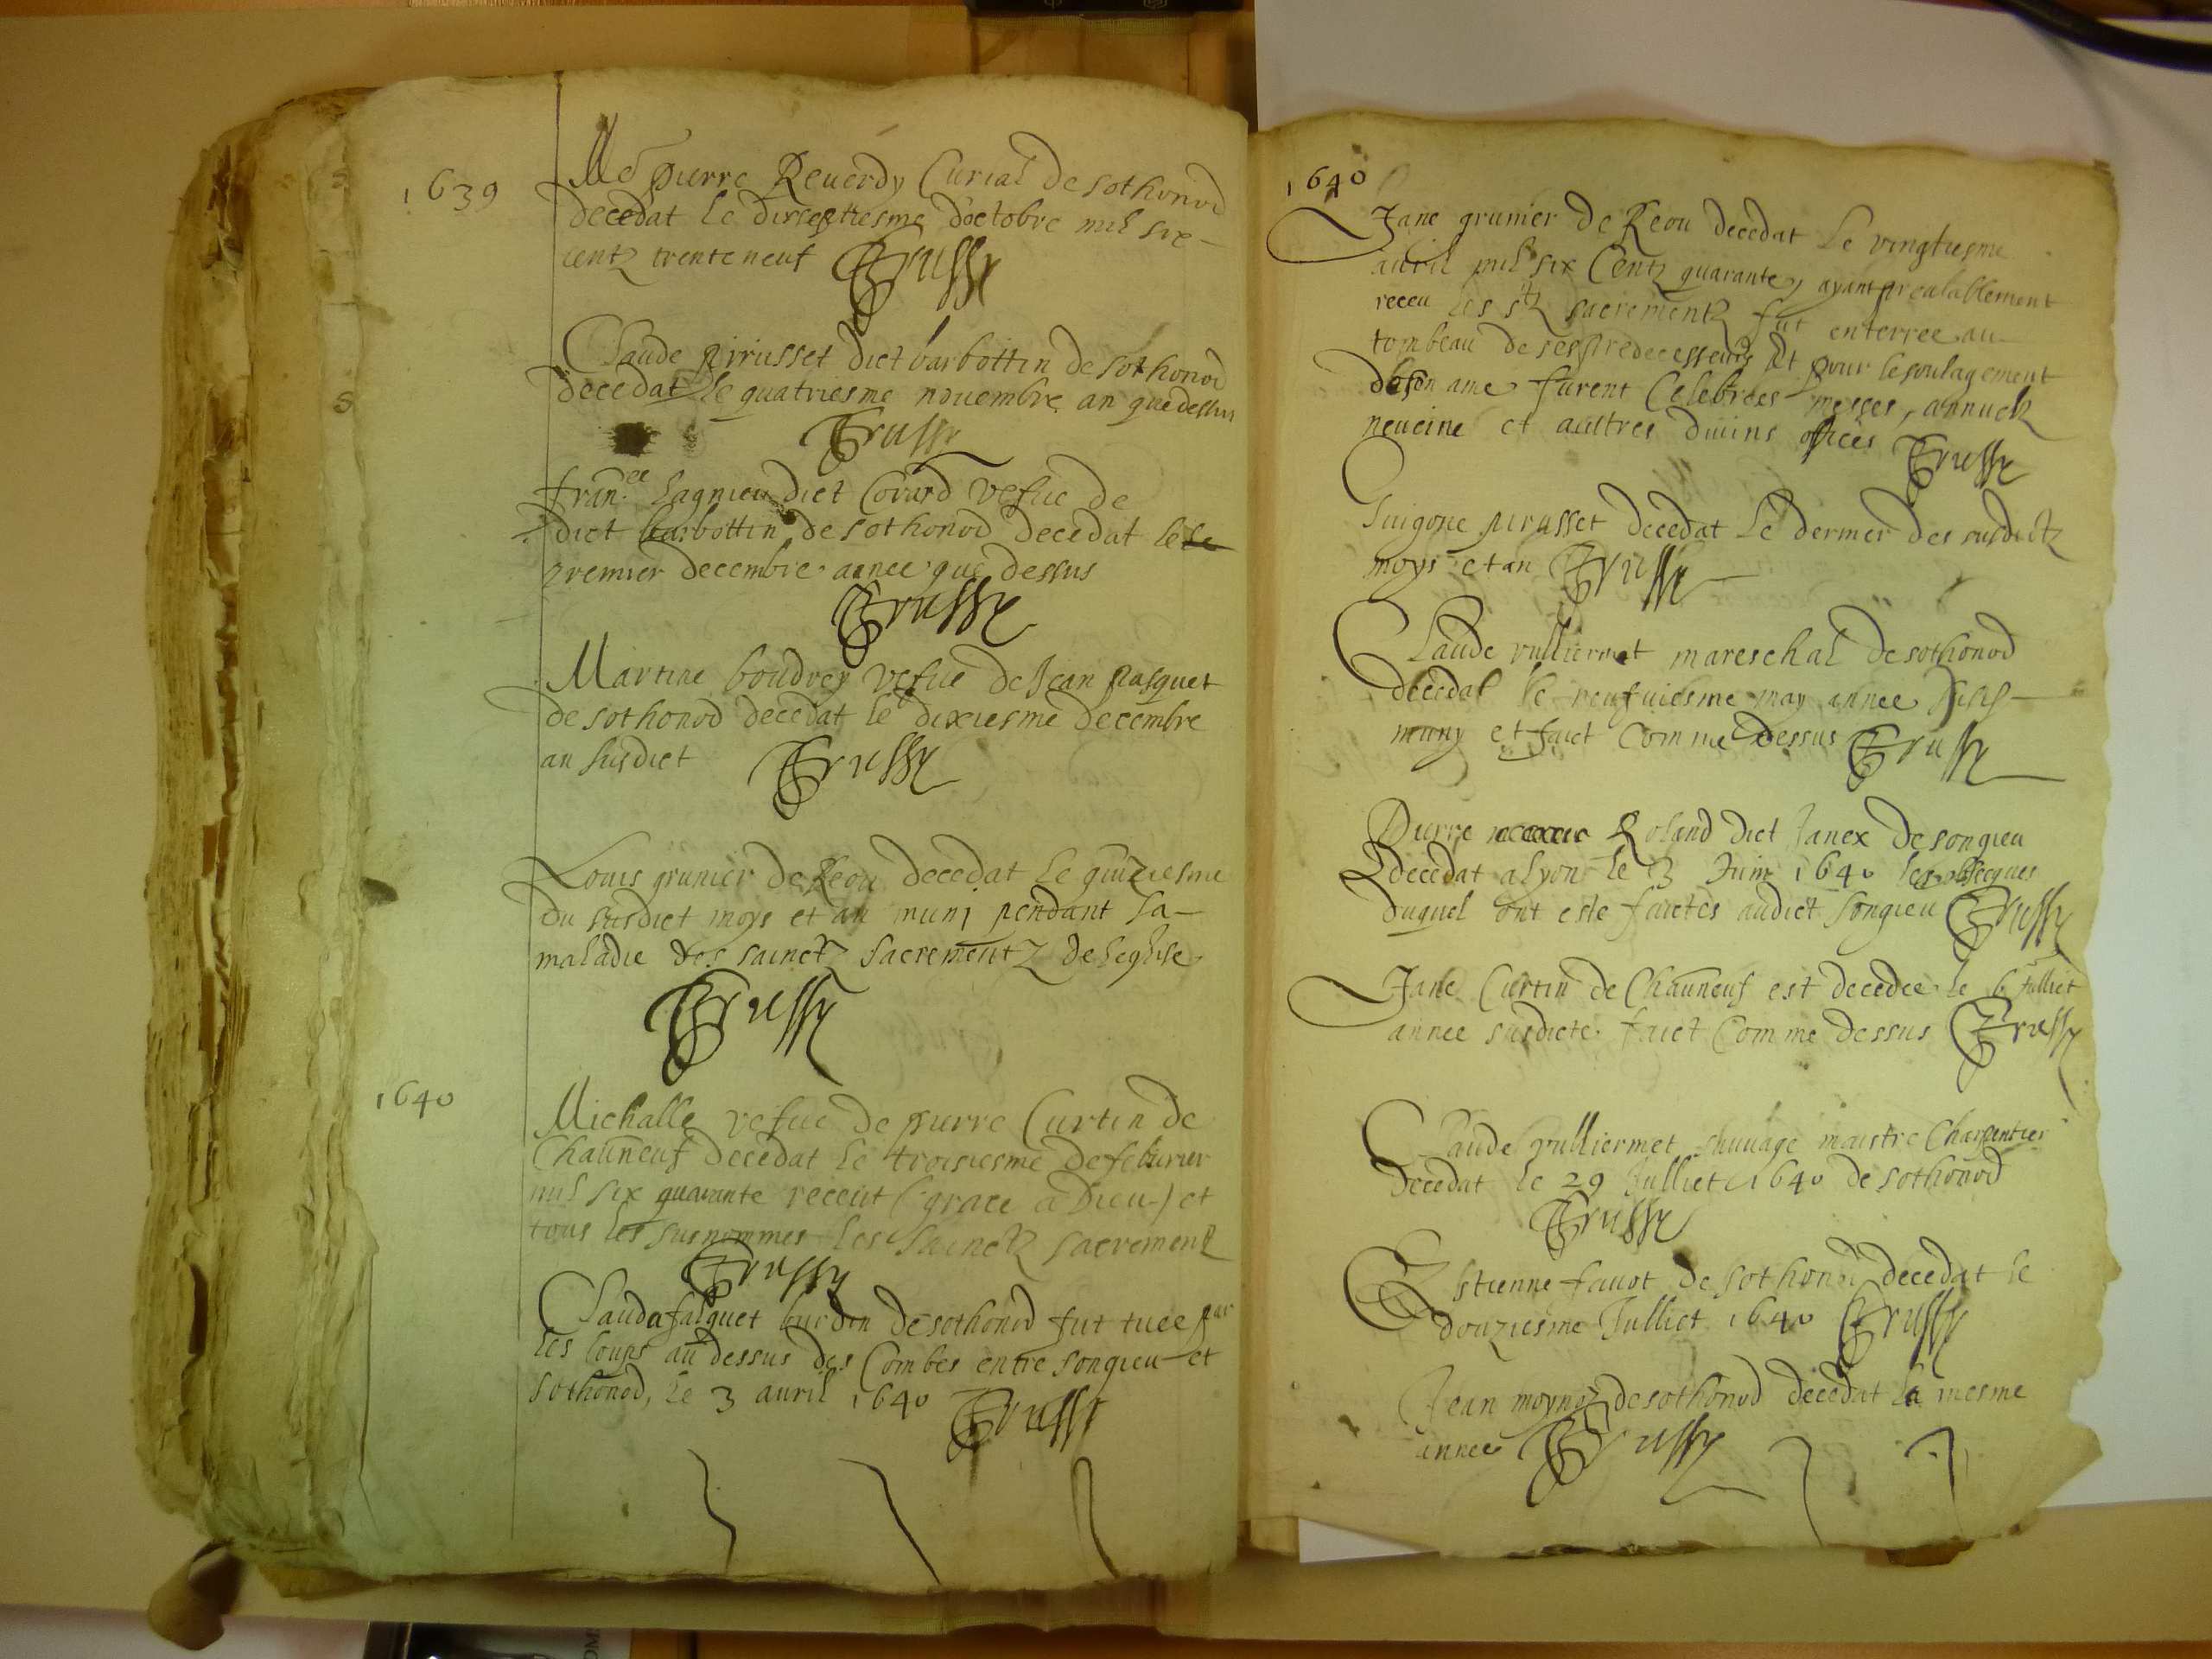 1639
Me pierre Reverdy Curial de sothonod
decedat le dixseptiesme d'octobre mil six
centz trente neuf Trussy
Claude pirrusset dict barbottin de sothonod
decedat le quatriesme novembre an que dessus
Trussy
fran.ce lagnieu dict Covard vefue de
dict barbottin de sothonod decedat le le
premier decembre annee que dessus
Trussy
Martine boudrey vefue de Jean pasquet
de sothonod decedat le dixiesme decembre
an susdict Trussy
Louis grunier de Reou decedat le quinziesme
du susdict moys et an muni pendant sa
maladie des sainctz sacrementz de leglise
Trussy
1640
Michalle vefue de pierre Curtin de
Chauneuf decedat le troisiesme de feburier
mil six quarante receut (grace a Dieu) et
tous les susnommes les sainctz sacrementz
Trussy
Clauda falquet burdin de sothonod fut tuee par
les loups au dessus des Combes entre songieu et
sothonod, le 3 avril 1640 Trussy
1640
Jane grunier de Reou decedat le vingtiesme
auril mil six Centz quarante, ayant prealablement
receu les stz sacrementz fut enterree au
tombeau de ses predecesseurs Et pour le soulagement
de son ame furent Celebrees messes, annuelz
neuveine et aultres divins offices Trussy
Guigone pirusset decedat le dernier des susdictz
moys et an Trussy
Claude vulliermet mareschal de sothonod
decedat le neufuiesme may annee susd
muny et faict Comme dessus Trussy
Pierre Roland dict Janex de songieu
decedat a Lyon le 3 Juin 1640 les obsecques
duquel ont este faictes audict songieu Trussy
Jane Curtin de Chauneuf est decedee le 6 Julliet
annee susdicte faict Comme dessus Trussy
Claude vulliermet sauvage maistre Charpentier
decedat le 29 Julliet 1640 de sothonod
Trussy
Estienne favot de sothonod decedat le
douziesme Julliet 1640 Trussy
Jean moynoz de sothonod decedat la mesme
annee Trussy